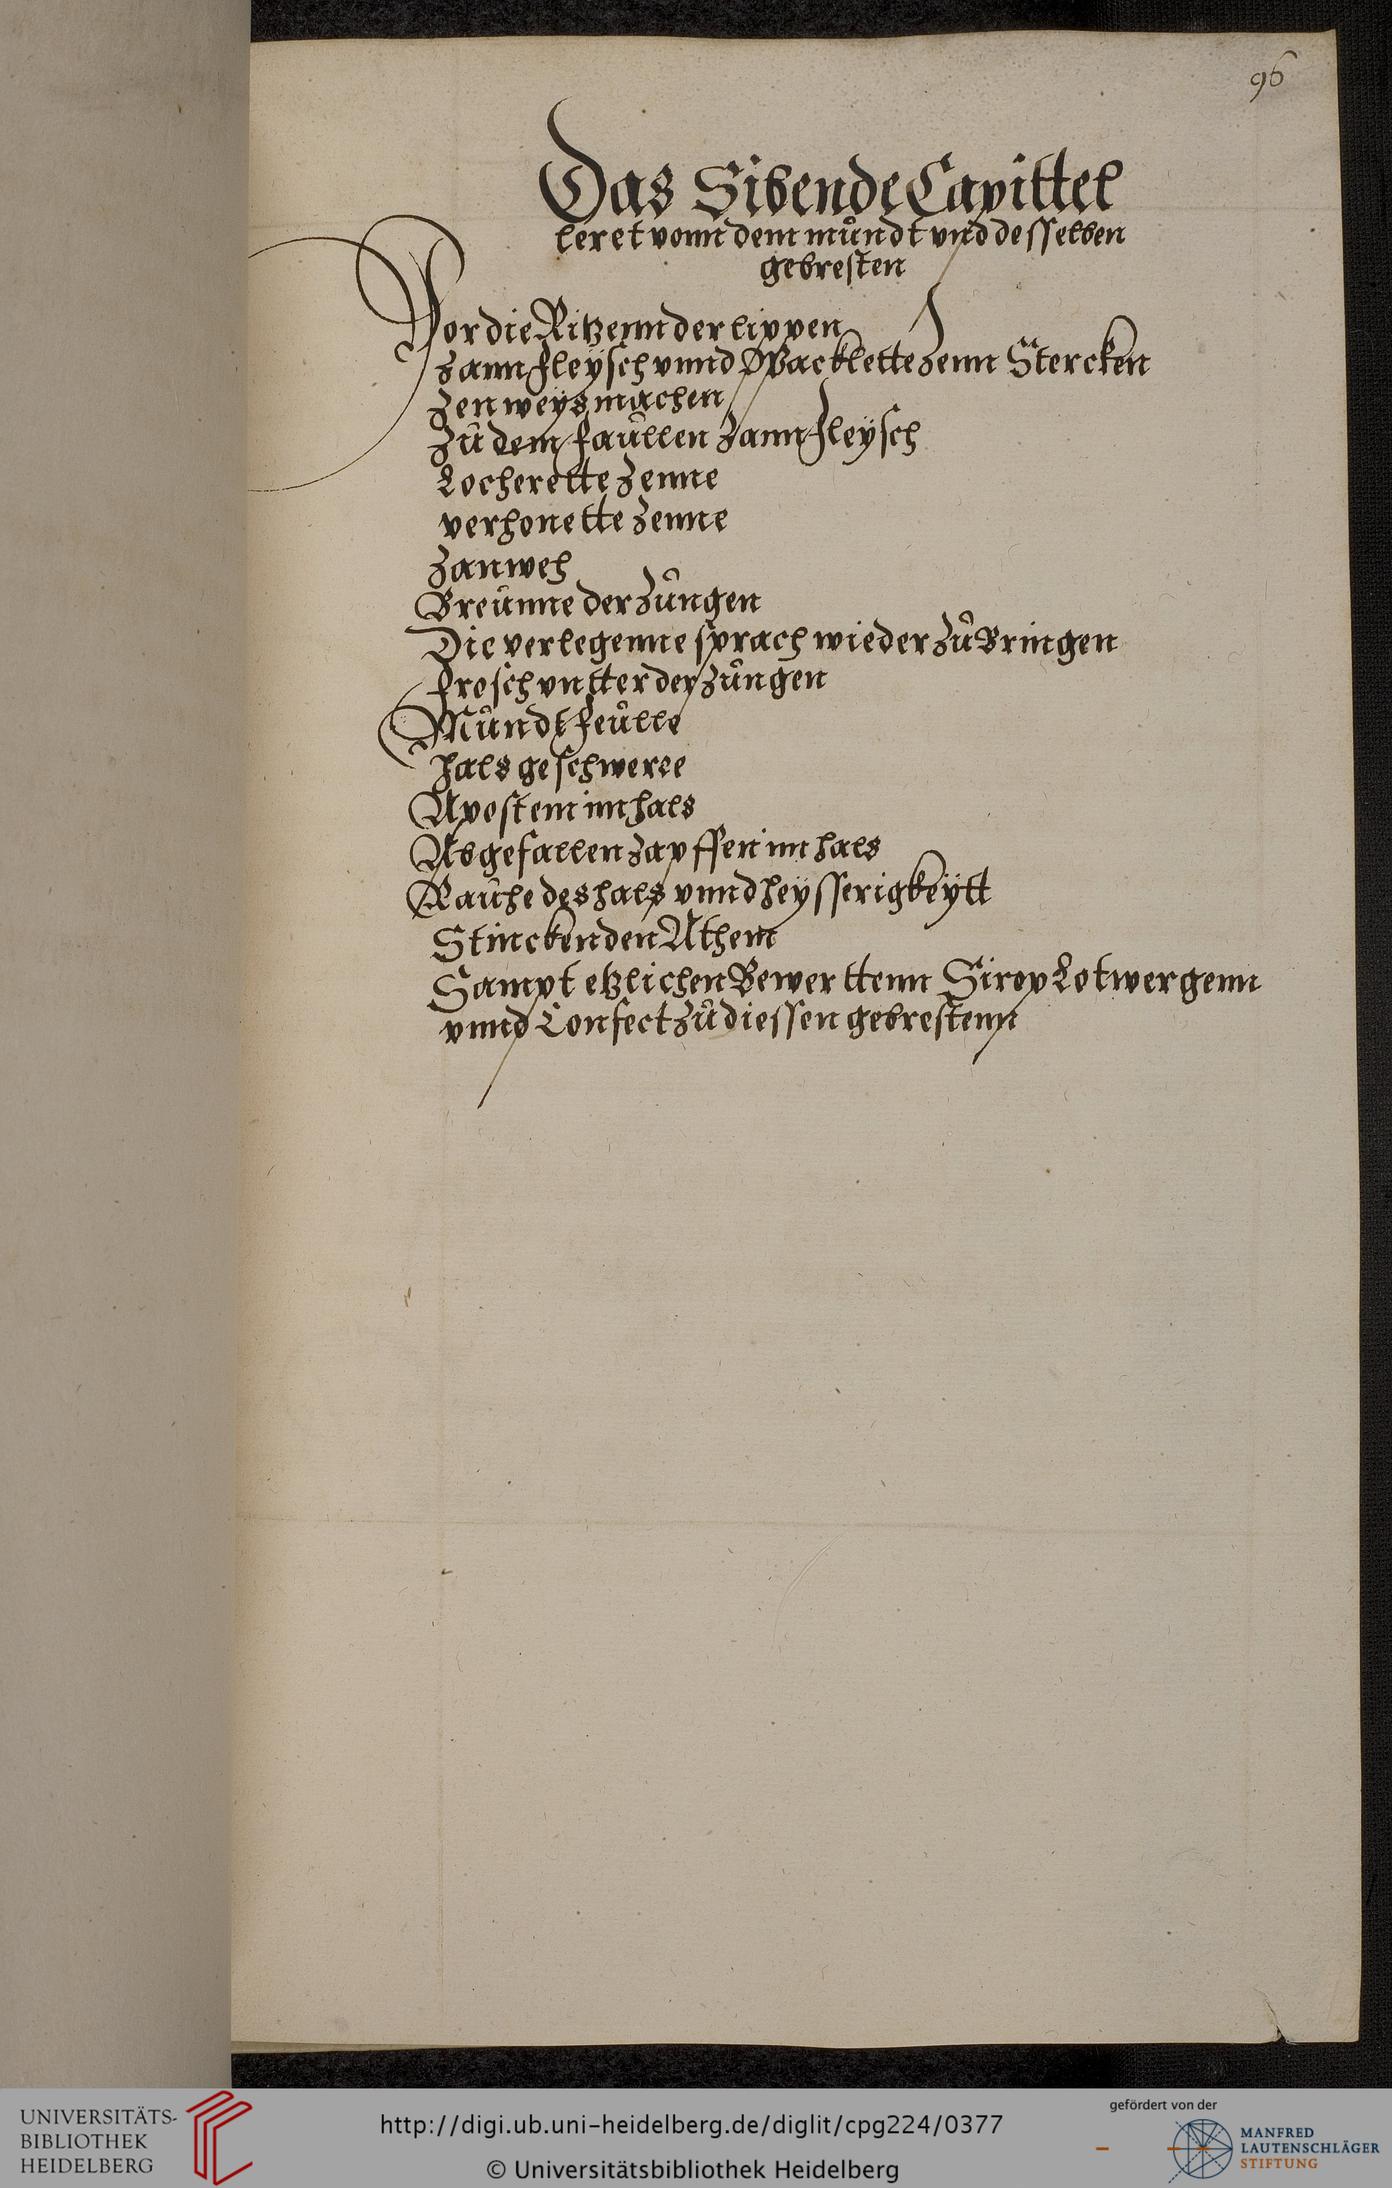 96
Das Sibende Capittel
leret vonn dem můndt vnd desselben
gebresten
Vor die Ritzenn der lippen
Zann fleysch vnnd Wacklette Zenn Stercken
Zen weys machen
Zů dem faůllen Zann fleysch
Locherette Zenne
verhonette Zenne
Zanweh
Breůnne der Zůngen
Die verlegenne sprach wieder zů Bringen
frosch vntter der zůngen
Můndt feůlle
Hals geschwere
Apostem im hals
Abgefallen zapffen im hals
Raůhe des hals vnnd heysserigkeytt
Stinckenden Athem
Sampt etzlichen Bewerttenn Sirop Lotwergenn
vnnd Confect zů diessen gebrestenn
UNIVERSITÄTS-
BIBLIOTHEK
HEIDELBERG
http://digi.ub.uni-heidelberg.de/diglit/cpg224/0377
© Universitätsbibliothek Heidelberg
gefördert von der
MANFRED
LAUTENSCHLÄGER
STIFTUNG